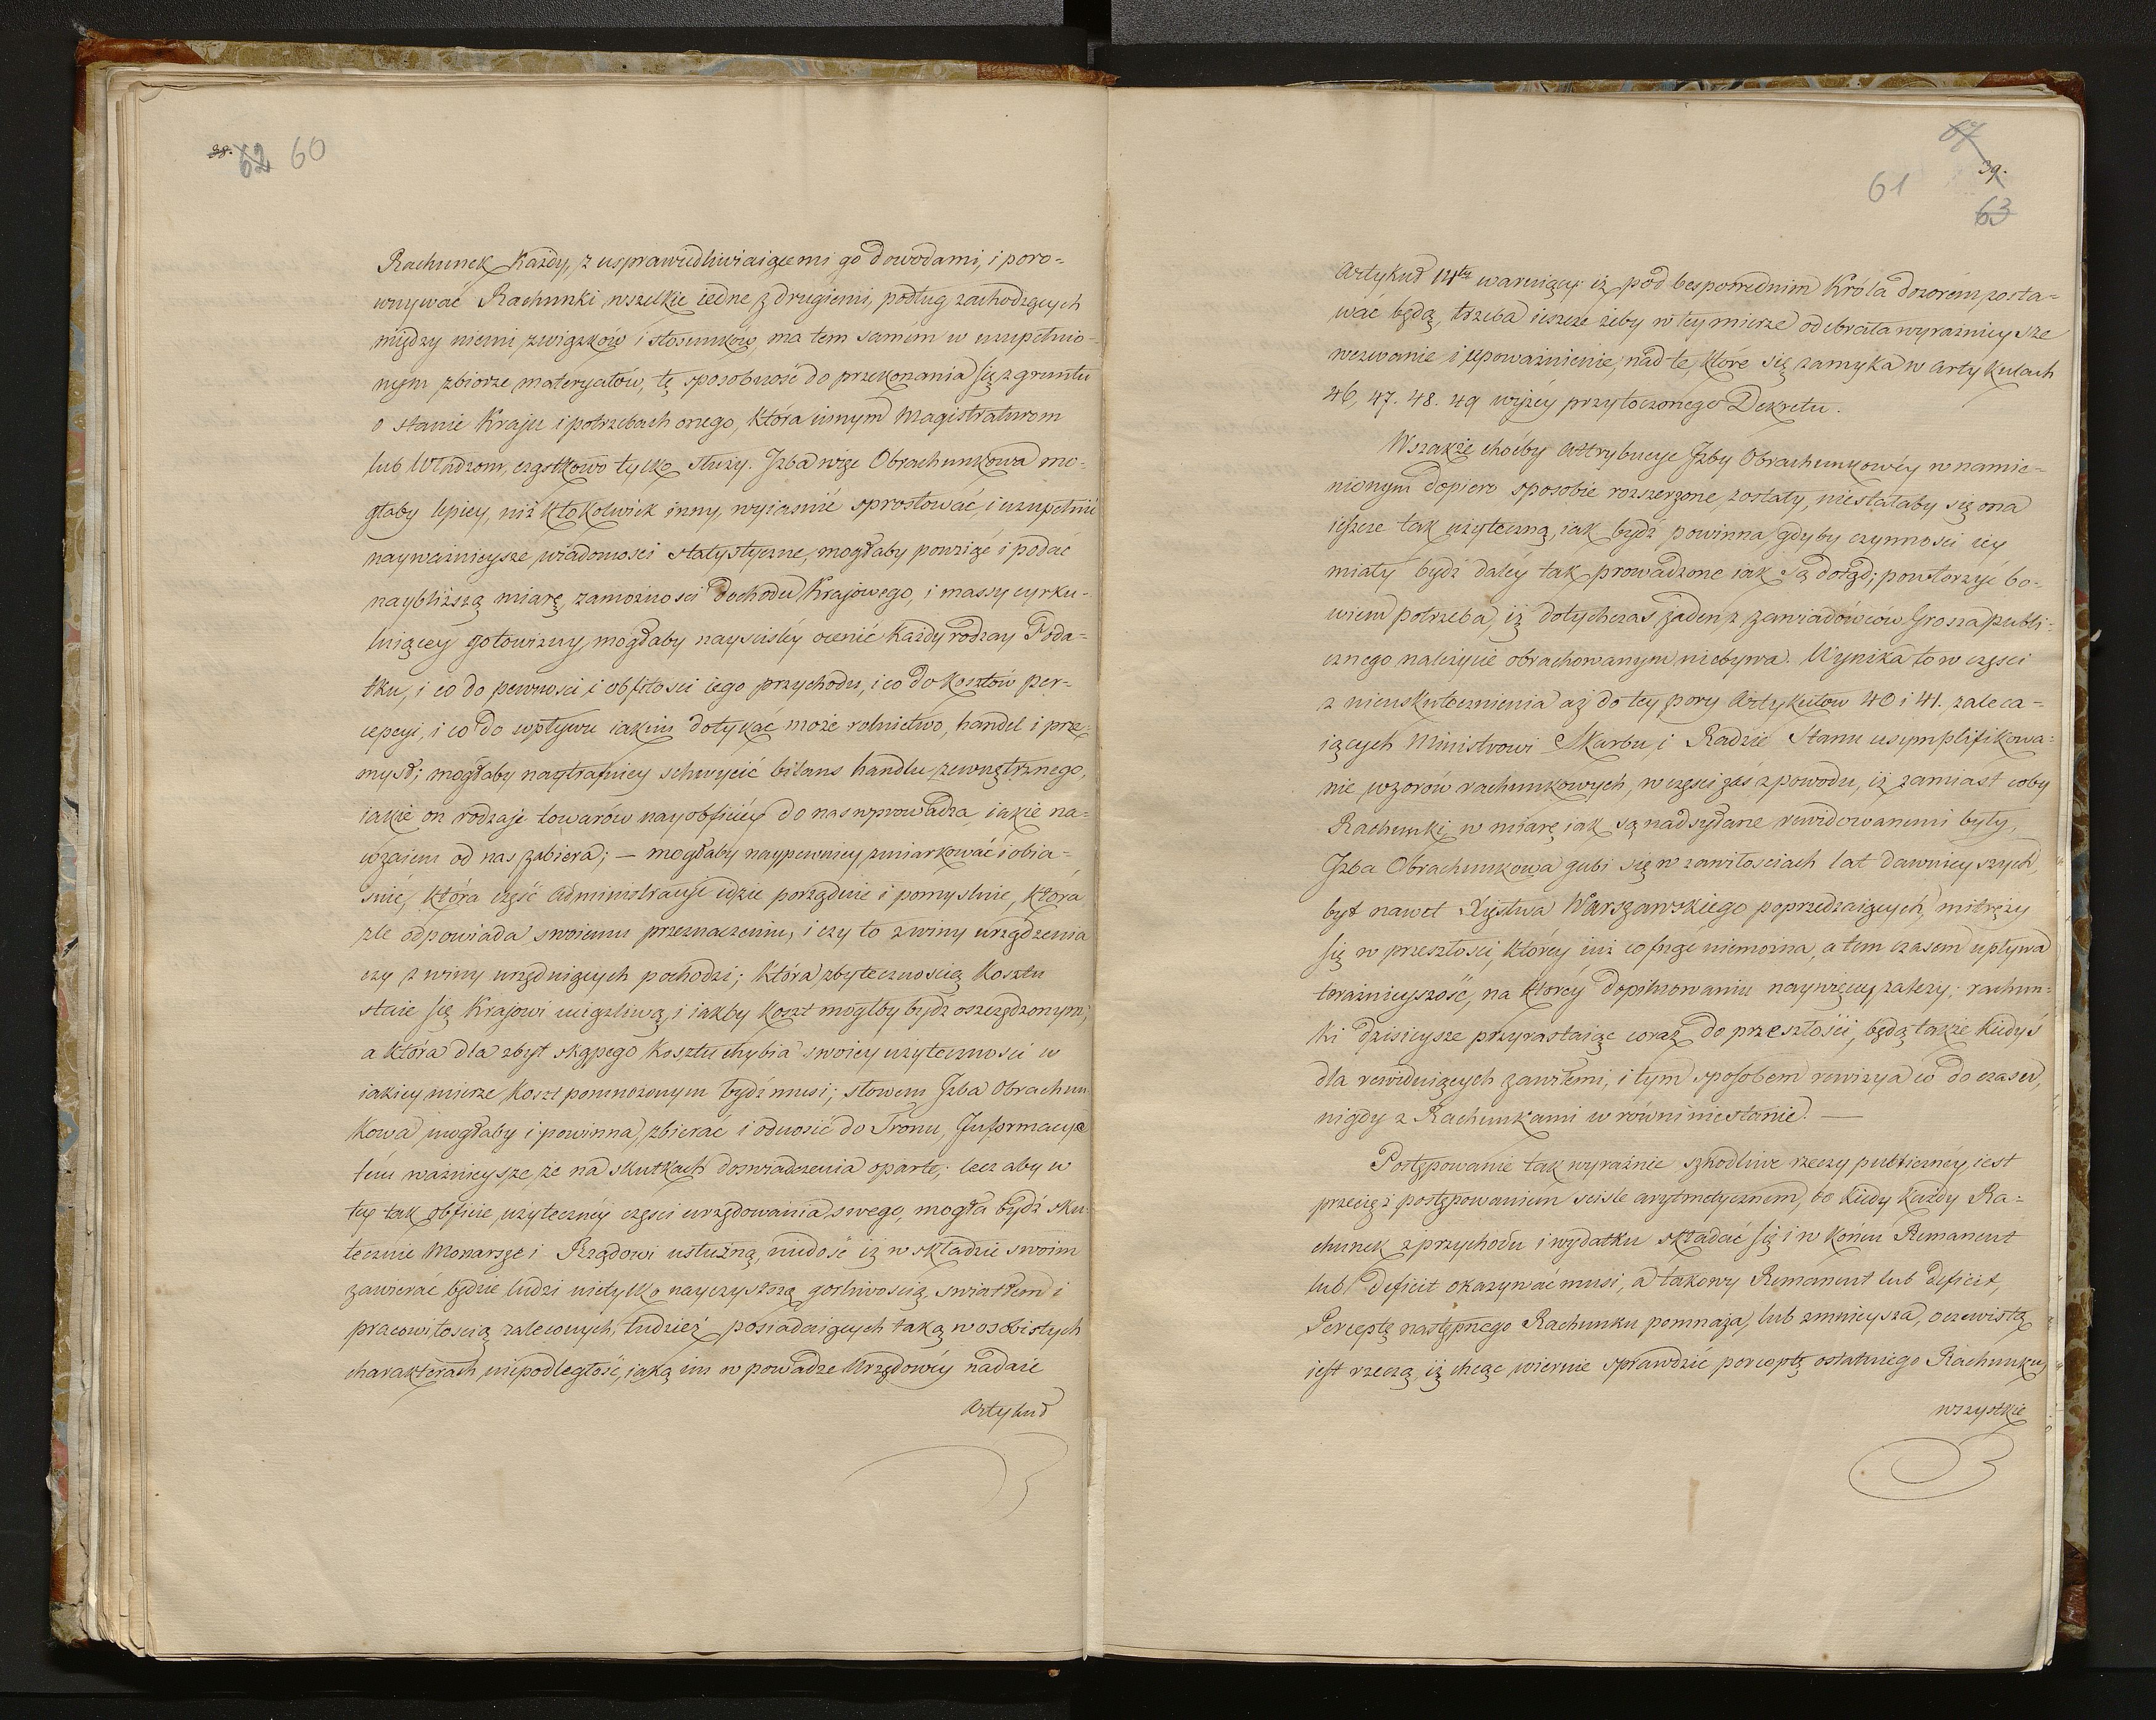 38. 62 60
Rachunek Każdy, z usprawiedliwiaiącemi go dowodami, i poro-
wnywać Rachunki wszelkie iedne z drugiemi, podług zachodzących
między niemi związków i stosunków, ma tem samém w uzupełnio-
nym zbiorze materyałów, tę sposobność do przekonania się z gruntu
o stanie Kraju i potrzebach onego, która innym Magistraturom
lub Władzom, cząstkowo tylko służy. Jzba więc Obrachunkowa mo-
głaby lepiey, niż ktokolwiek inny, wyiaśnić sprostować, i uzupełnić
nayważnieysze wiadomości statystyczne, mogłaby powziąć i podać
naybliższą miarę, zamożności dochodu Krajowego, i massy cyrku-
luiącey gotowizny, mogłaby nayściśléy ocenić każdy rodzay Poda-
tku, i co do pewności i obfitości iego przychodu, i co do kosztów per-
cepcyi, i co do wpływu iakim dotykać może rolnictwo, handel i prze-
mysł; mogłaby naytrafniey schwycić bilans handlu zewnętrznego,
iakie on rodzaje towarów nayobficiéy do nas wprowadza, iakie na-
wzaiem od nas zabiera; — mogłaby naypewniey zmiarkować i obia-
śnić, która część Administracyi idzie porządnie i pomyślnie, która
źle odpowiada swoiemu przeznaczeniu, i czy to z winy urządzenia
czy z winy urzęduiących pochodzi; która zbytecznością Kosztu
staie się Krajowi uciążliwą, i iakby koszt mógłby bydź oszczędzonym,
a która dla zbyt skąpego Kosztu chybia swoiey użyteczności w
iakiey mierze Koszt pomnożonym bydź musi; słowem Jzba Obrachun
kowa, mogłaby i powinna, zbierać i odnosić do Tronu, Jnformacye
tém ważnieysze, że na skutkach doświadczenia oparte; lecz aby w
téy tak obficie użyteczney części urzędowania swego, mogła bydź sku-
tecznie Monarszę i Rządowi usłużną, niedość iż w składzie swoim
zawierać będzie ludzi nietylko nayczystszą gorliwością, światłem i
pracowitością zaleconych, tudzież posiadaiących taką w osobistych
charakterach niepodległość, iaką im w powadze Urzędowéy nadaie
Artykuł
67
39.
61
63
Artykuł 14ty waruiący iż pod bespośrednim Króla dozorém zosta-
wać będą, trzeba ieszcze żeby w tey mierze odebrała wyraźnieysze
wezwanie i upoważnienie, nad te, które się zamyka w Artykułach
46, 47. 48. 49 wyżéy przytoczonego Dekretu.
Wszakże choćby Attrybucye Jzby Obrachunkowéy w namie-
nionym dopiero sposobie rozszerzone, zostały, niestałaby się ona
ieszcze tak użyteczną, iak bydź powinna, gdyby czynności iey
miały bydź daléy tak prowadzone iak są dotąd; powtorzyć bo-
wiem potrzeba, iż dotychczas żaden z zawiadówców Grosza publi-
cznego należycie obrachowanym niebywa. Wynika to w części
z nieuskutecznienia aż do tey pory Artykułów 40 i 41. zaleca-
iących Ministrowi Skarbu, i Radzie Stanu usymplifikowa-
nie wzorów rachunkowych, w części zaś z powodu, iż zamiast coby
Rachunki, w miarę iak są nadsyłane rewidowanemi były,
Jzba Obrachunkowa gubi się w zawiłościach lat dawnieyszych,
byt nawet Xięstwa Warszawskiego poprzedzaiących, mitręży
się w przeszłości, którey iuż cofnąć niemożna, a tem czasem upływa
teraźnieyszość, na ktorey dopilnowaniu naywięcey zależy; rachun-
ki dzisieysze przyrastaiąc coraz do przeszłości, będą także kiedyś
dla rewiduiących zawiłemi, i tym sposobem rewizya co do czasu,
nigdy z Rachunkami w równi niestanie. —
Postępowanie tak wyraźnie szkodliwe rzeczy publicznéy, iest
przecięż postępowaniem ściśle arytmetycznem, bo kiedy każdy Ra-
chunek z przychodu i wydatku składać się i w końcu Remanent
lub Deficit okazywać musi, a takowy Remanent lub Deficit,
Perceptę następnego Rachunku pomnaża, lub zmnieysza, oczewistą
iest rzeczą, iż chcąc wiernie sprawdzić perceptę ostatniego Rachunku,
wszystkie